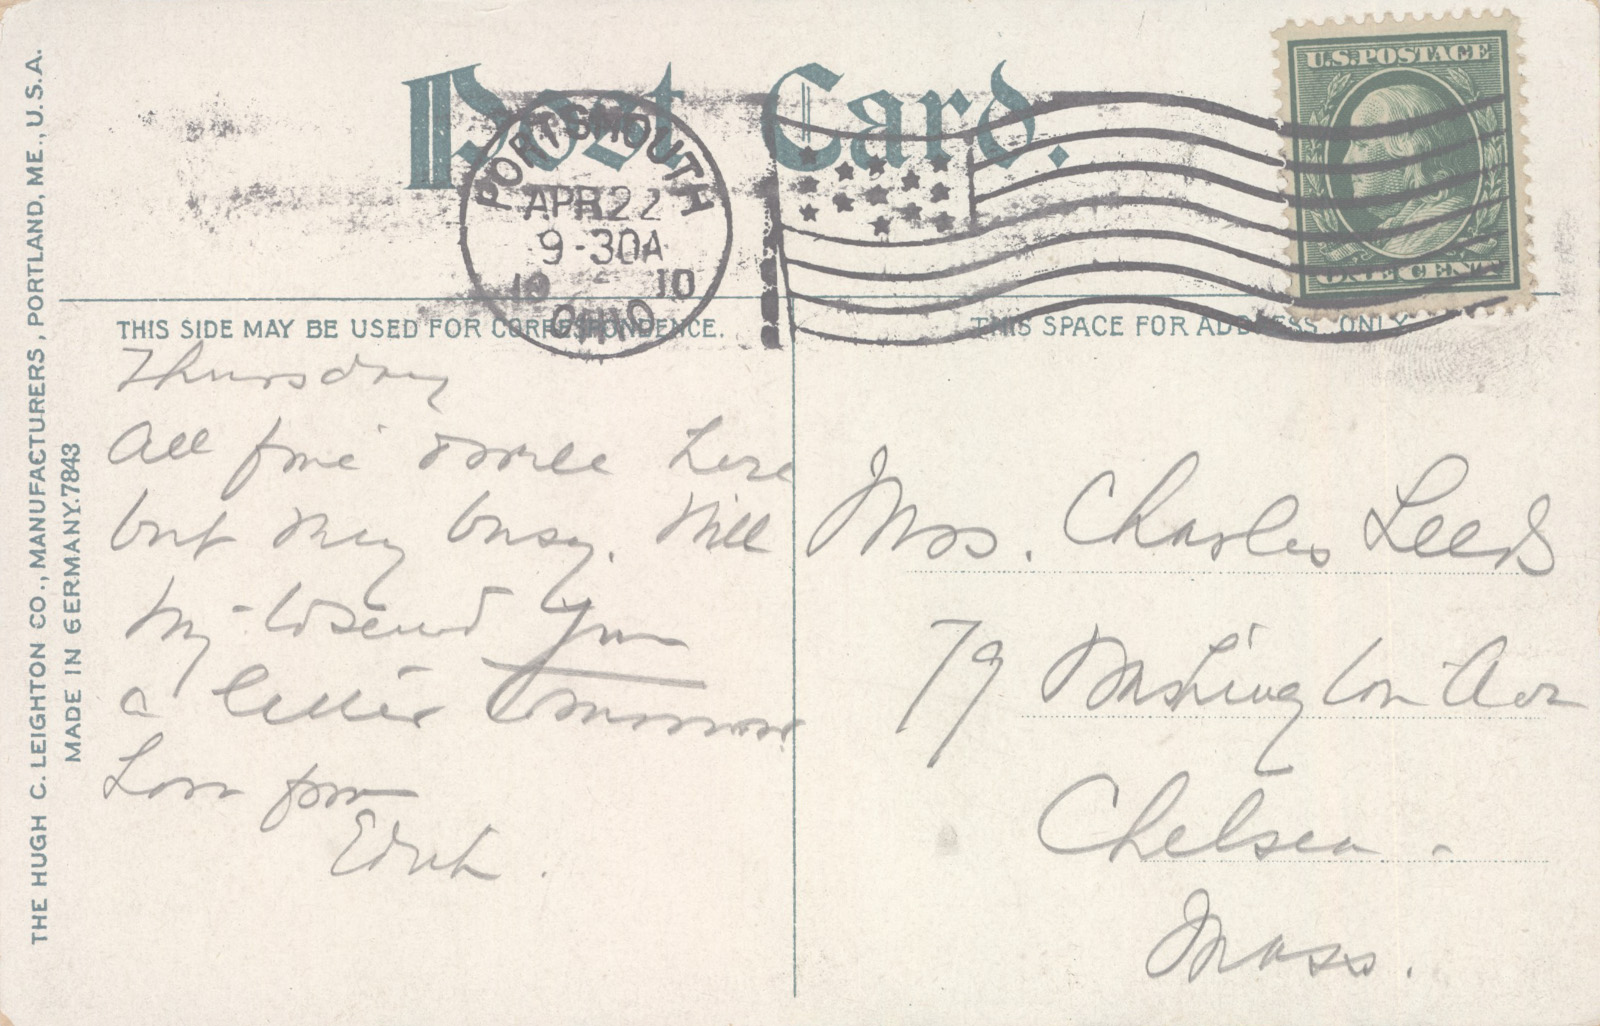 Post Card.
U.S. POSTAGE
ONE CENT
PORTSMOUTH
APR 22
9-30A
19 10
OHIO
THIS SIDE MAY BE USED FOR CORRESPONDENCE.
THIS SPACE FOR ADDRESS ONLY
Thursday
All fine & well here
but very busy. Will
try to send you
a letter tomorrow
Love from
Edith.
Mrs. Charles Leeds
79 Washington Ave
Chelsea.
Mass.
THE HUGH C. LEIGHTON CO., MANUFACTURERS, PORTLAND, ME., U.S.A.
MADE IN GERMANY. 7843